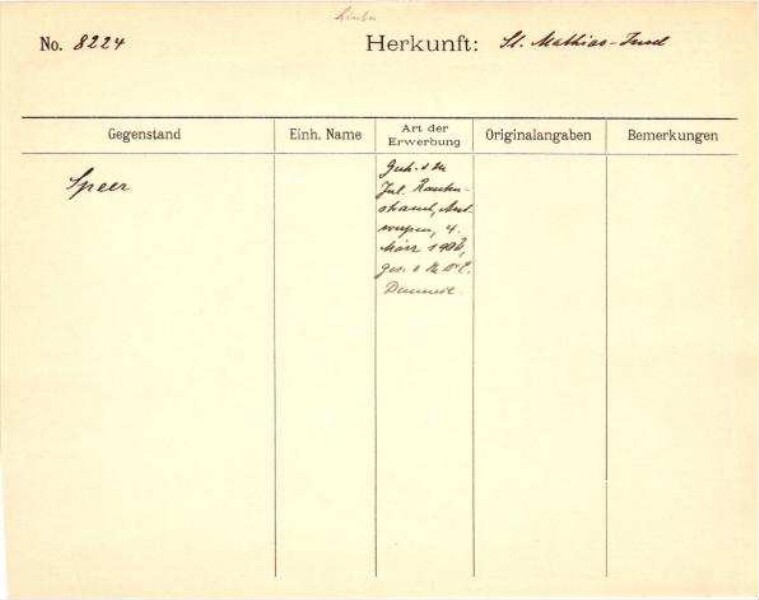 No. 8224
Herkunft: St. Mathias-Insel
Gegenstand
Einh. Name
Art der
Erwerbung
Originalangaben
Bemerkungen
Speer
Jul. Rauten-
strauch, Ant-
werpen, 4.
März